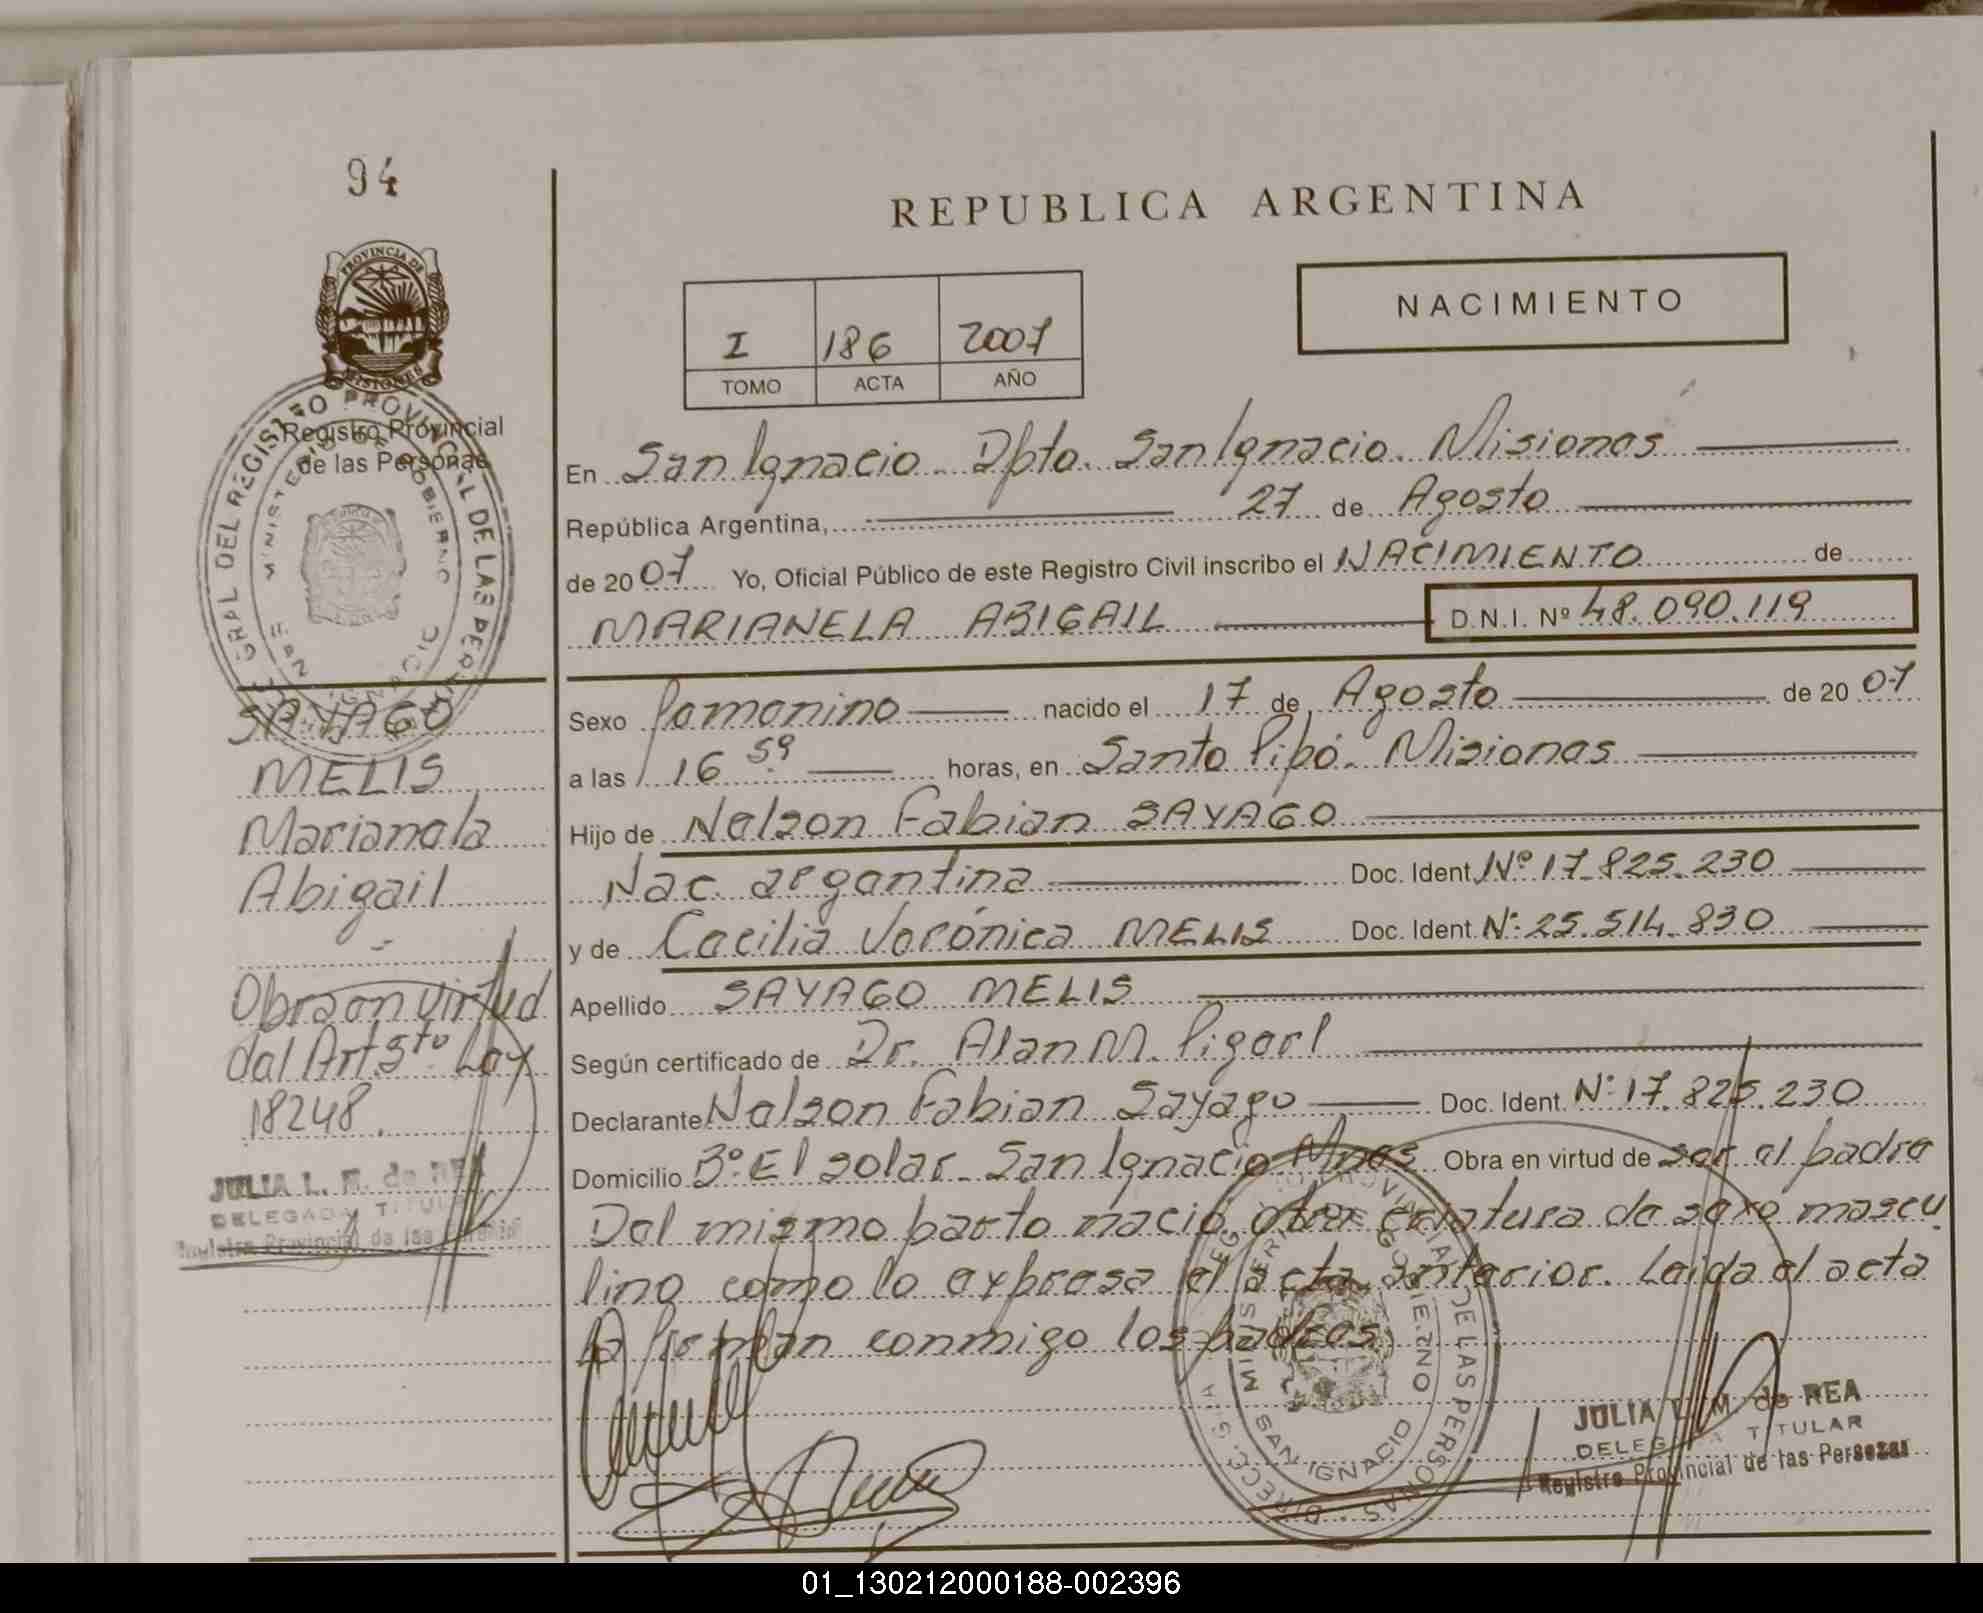 94
REPUBLICA ARGENTINA
PROVINCIA DE
MISIONES
NACIMIENTO
I 186 2007
TOMO ACTA AÑO
Registro Provincial
de las Personas
GRAL DEL REGISTRO PROVINCIAL DE LAS PER
MINISTERIO DE GOBIERNO
SAN IGNACIO
En San Ignacio. Dpto. San Ignacio. Misiones
República Argentina, 27 de Agosto
de 2007 Yo, Oficial Público de este Registro Civil inscribo el NACIMIENTO de
MARIANELA ABIGAIL D.N.I. Nº 48.090.119
SAYAGO
MELIS
Marianela
Abigail
Obra en virtud
del Art 5to Ley
18248.
JULIA L. M. de REA
DELEGADA TITULAR
Registro Provincial de las
Sexo femenino nacido el 17 de Agosto de 2007
a las 16 59 horas, en Santo Pipó. Misiones
Hijo de Nelson Fabian SAYAGO
Nac. argentina Doc. Ident. Nº 17.825.230
y de Cecilia Verónica MELIS Doc. Ident. Nº: 25.514.830
Apellido SAYAGO MELIS
Según certificado de Dr. Alan M.
Declarante Nelson Fabian Sayago Doc. Ident. Nº: 17.825.230
Domicilio Bº. El solar. San Ignacio Mnes Obra en virtud de ser el padre
Del mismo parto nació otra criatura de sexo mascu
lino como lo expresa el acta anterior. Leida el acta
la firman conmigo los padres.
MINISTERIO DE GOBIERNO
PROVINCIAL DE LAS PERSONAS
SAN IGNACIO
JULIA L. M. de REA
DELEGADA TITULAR
Registro Provincial de las Personas
01_130212000188-002396